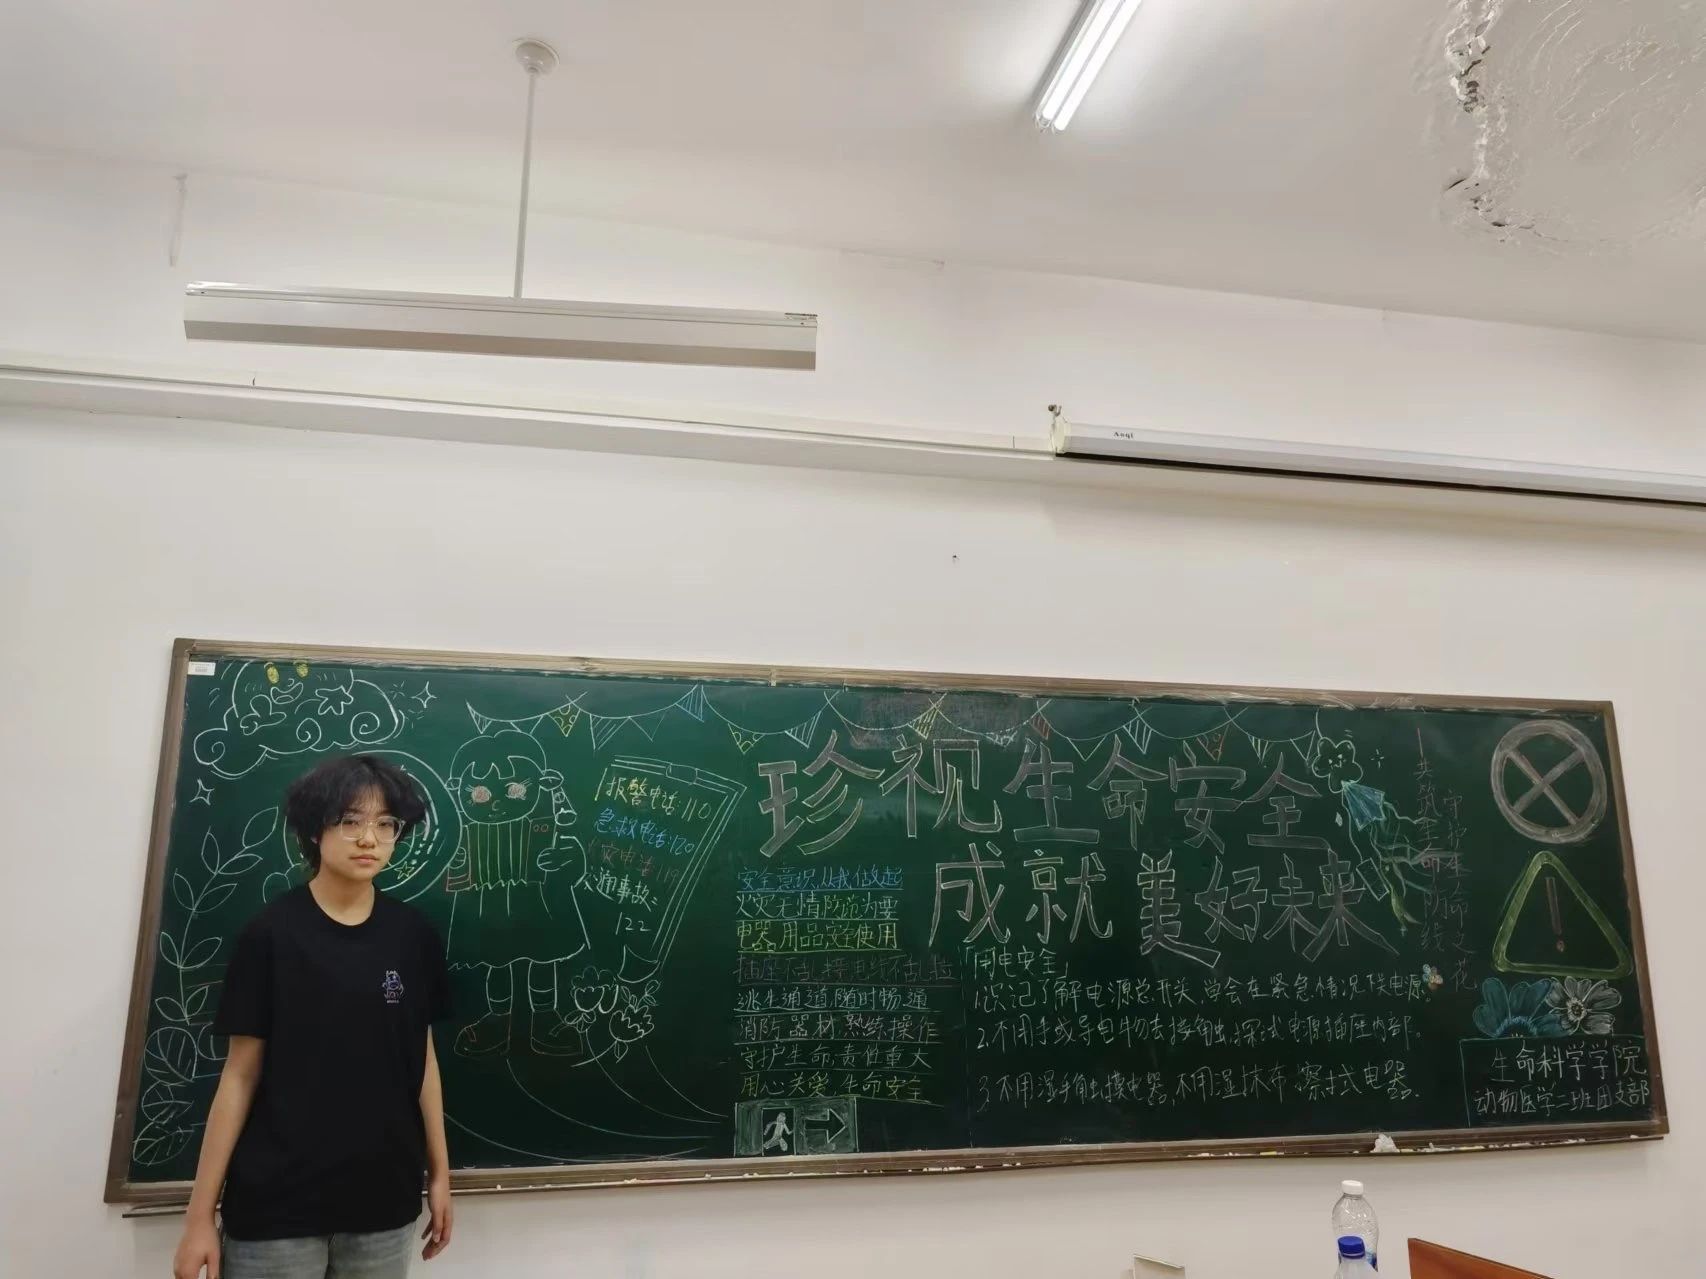 Aoqi
报警电话:110
急救电话:120
火灾电话:119
交通事故:
122
珍视生命安全
成就美好未来
安全意识,从我做起
火灾无情防范为要
电器用品安全使用
插座不乱接电线不乱拉
逃生通道,随时畅通
消防器材,熟练操作
守护生命,责任重大
用心关爱,生命安全
「用电安全」
1.识记了解电源总开关,学会在紧急情况关电源。
2.不用手或导电物去接触,探试电源插座内部。
3.不用湿手触摸电器,不用湿抹布擦拭电器.
—共筑生命防线
守护生命之花
生命科学学院
动物医学二班团支部